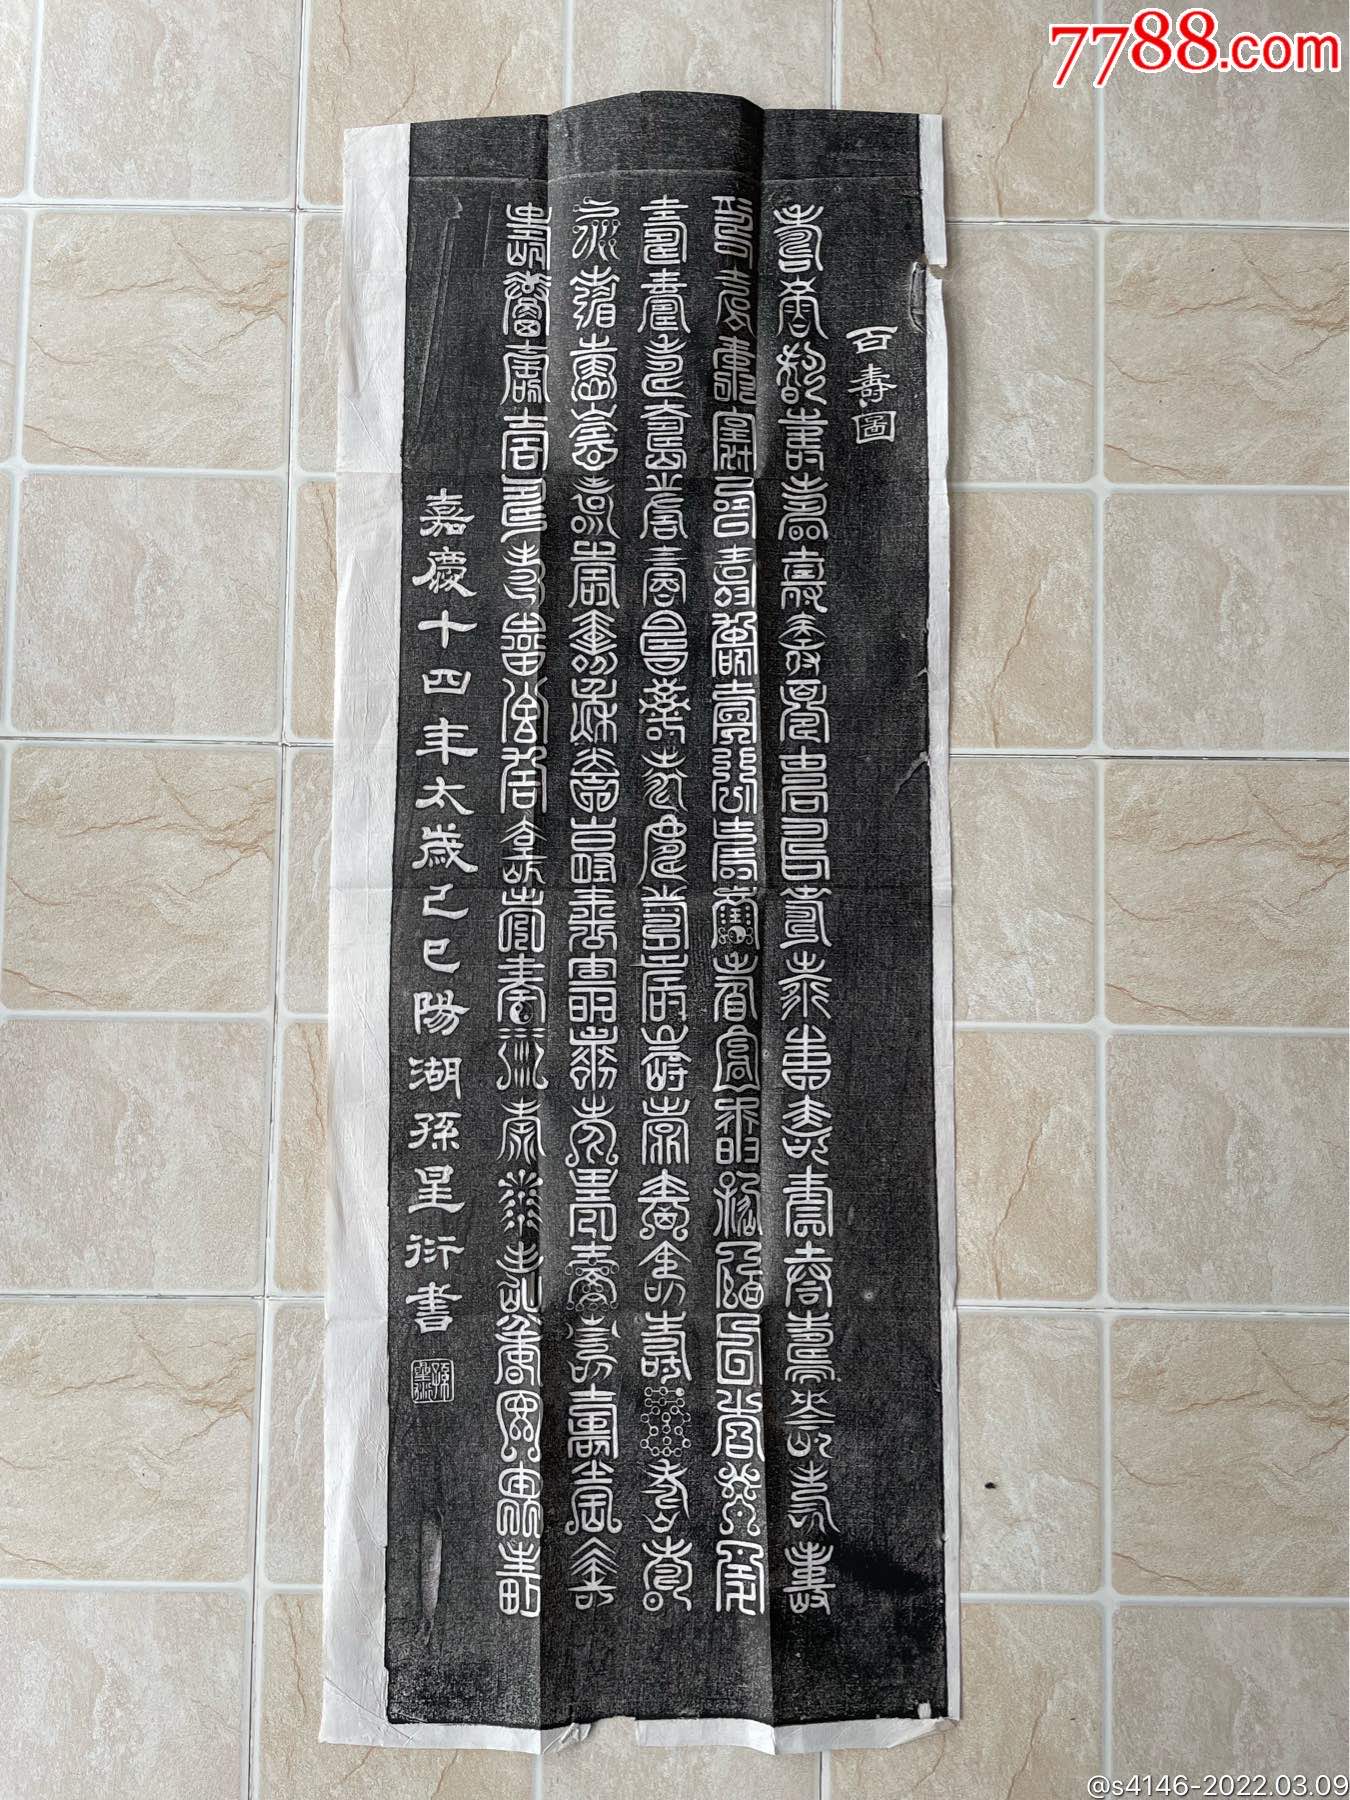 7788.com
百壽圖
壽壽壽壽壽壽壽壽壽壽壽壽壽壽壽壽壽壽壽壽
壽壽壽壽壽壽壽壽壽壽壽壽壽壽壽壽壽壽壽壽
壽壽壽壽壽壽壽壽壽壽壽壽壽壽壽壽壽壽壽壽
壽壽壽壽壽壽壽壽壽壽壽壽壽壽壽壽壽壽壽壽
壽壽壽壽壽壽壽壽壽壽壽壽壽壽壽壽壽壽壽壽
嘉慶十四年太歲己巳陽湖孫星衍書
孫星衍
@s4146-2022.03.09